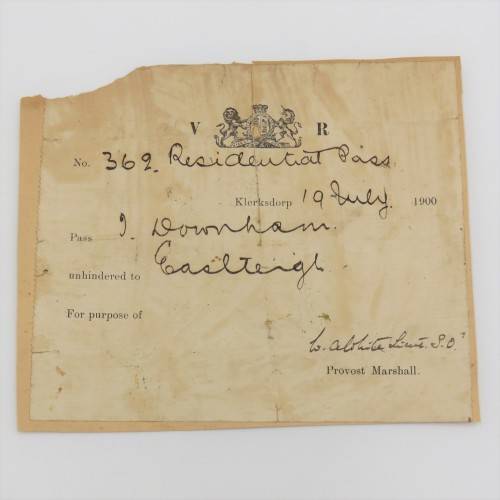 V R
No. 369. Residential Pass
Klerksdorp 19 July 1900
Pass J. Downham.
unhindered to Eastleigh
For purpose of
W. A White Lieut.
Provost Marshall.